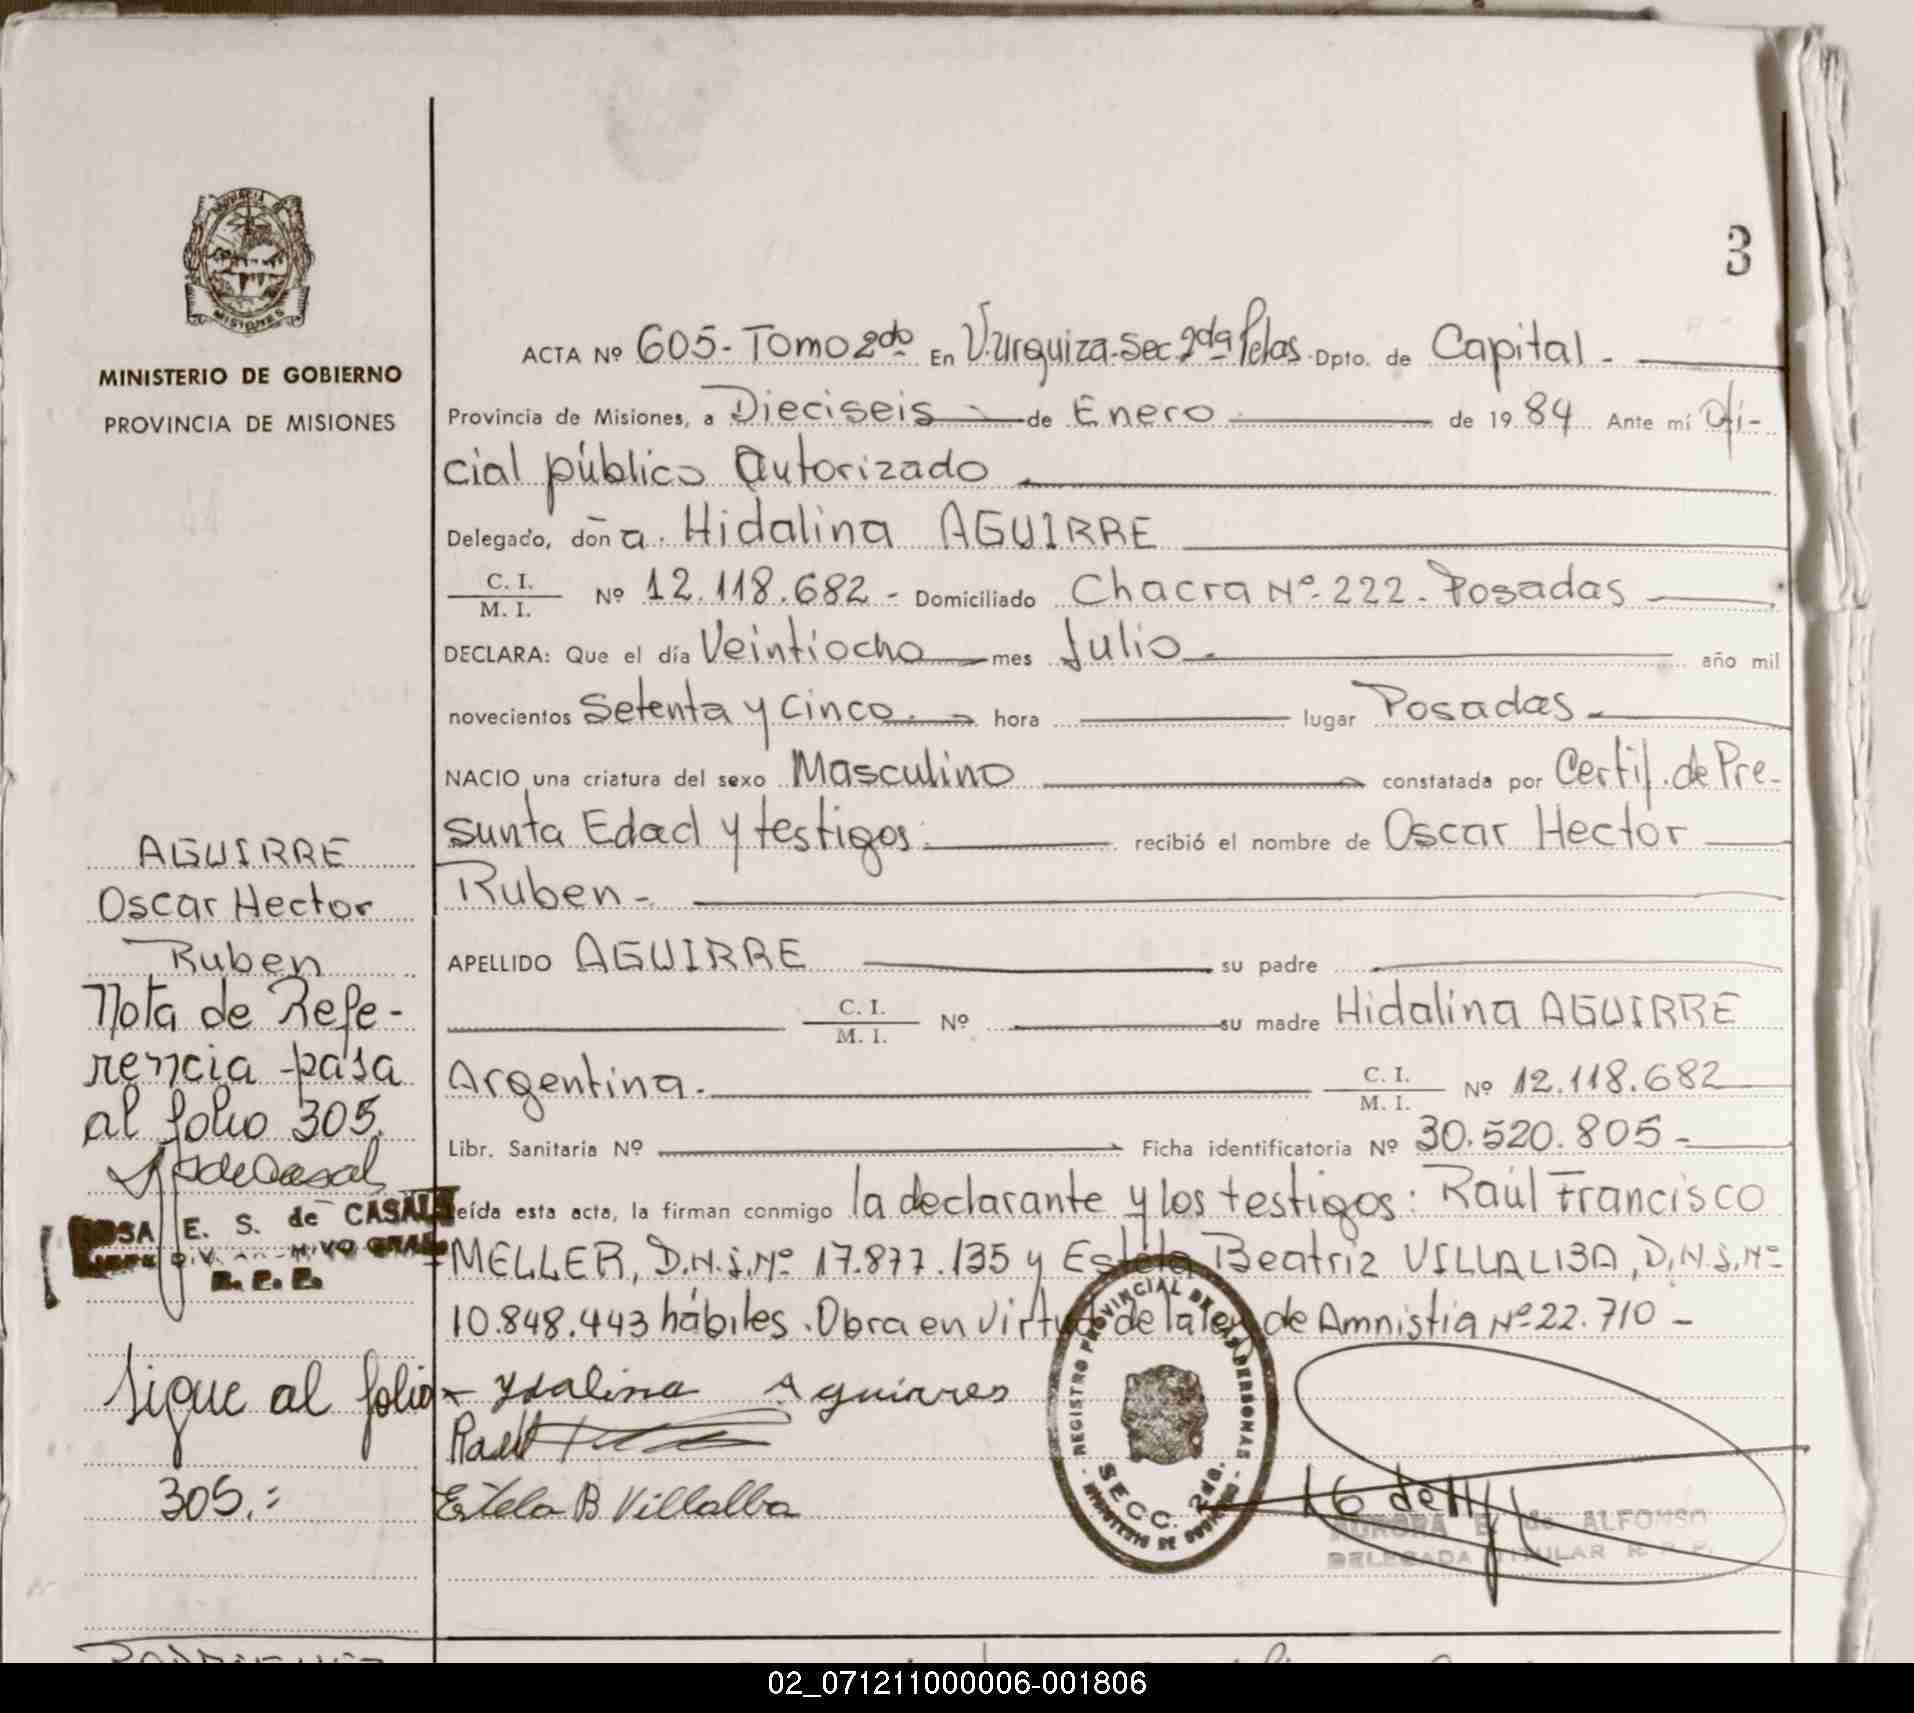 PROVINCIA
MISIONES
MINISTERIO DE GOBIERNO
PROVINCIA DE MISIONES
3
ACTA Nº 605- Tomo 2do En V. Urquiza. Sec 2da Pdas. Dpto. de Capital -
Provincia de Misiones, a Dieciseis de Enero de 1984 Ante mí Ofi-
cial público Autorizado
Delegado, doña. Hidalina AGUIRRE
C. I.
M. I. Nº 12.118.682 - Domiciliado Chacra Nº 222. Posadas
DECLARA: Que el día Veintiocho mes Julio año mil
novecientos Setenta y Cinco. hora lugar Posadas
NACIO una criatura del sexo Masculino constatada por Certif. de Pre-
sunta Edad y testigos. recibió el nombre de Oscar Hector
Ruben-
APELLIDO AGUIRRE su padre
C. I.
M. I. Nº su madre Hidalina AGUIRRE
Argentina. C. I.
M. I. Nº 12.118.682
Libr. Sanitaria Nº Ficha identificatoria Nº 30.520.805-
eída esta acta, la firman conmigo la declarante y los testigos: Raúl Francisco
MELLER, D.N.I. Nº 17.877.135 y Estela Beatriz VILLALBA, D.N.I. Nº
10.848.443 hábiles. Obra en virtud de la ley de Amnistia Nº 22.710 -
Ydalina Aguirres
Raul
Estela B Villalba
AGUIRRE
Oscar Hector
Ruben
Nota de Refe-
rencia pasa
al folio 305.
de Casal
ROSA E. S. de CASALS
Sigue al folio
305.:
REGISTRO PROVINCIAL DE LAS PERSONAS
SECC. 2da.
MINISTERIO DE GOBIERNO
AURORA E. de ALFONSO
DELEGADA TITULAR R. P. P.
02_071211000006-001806